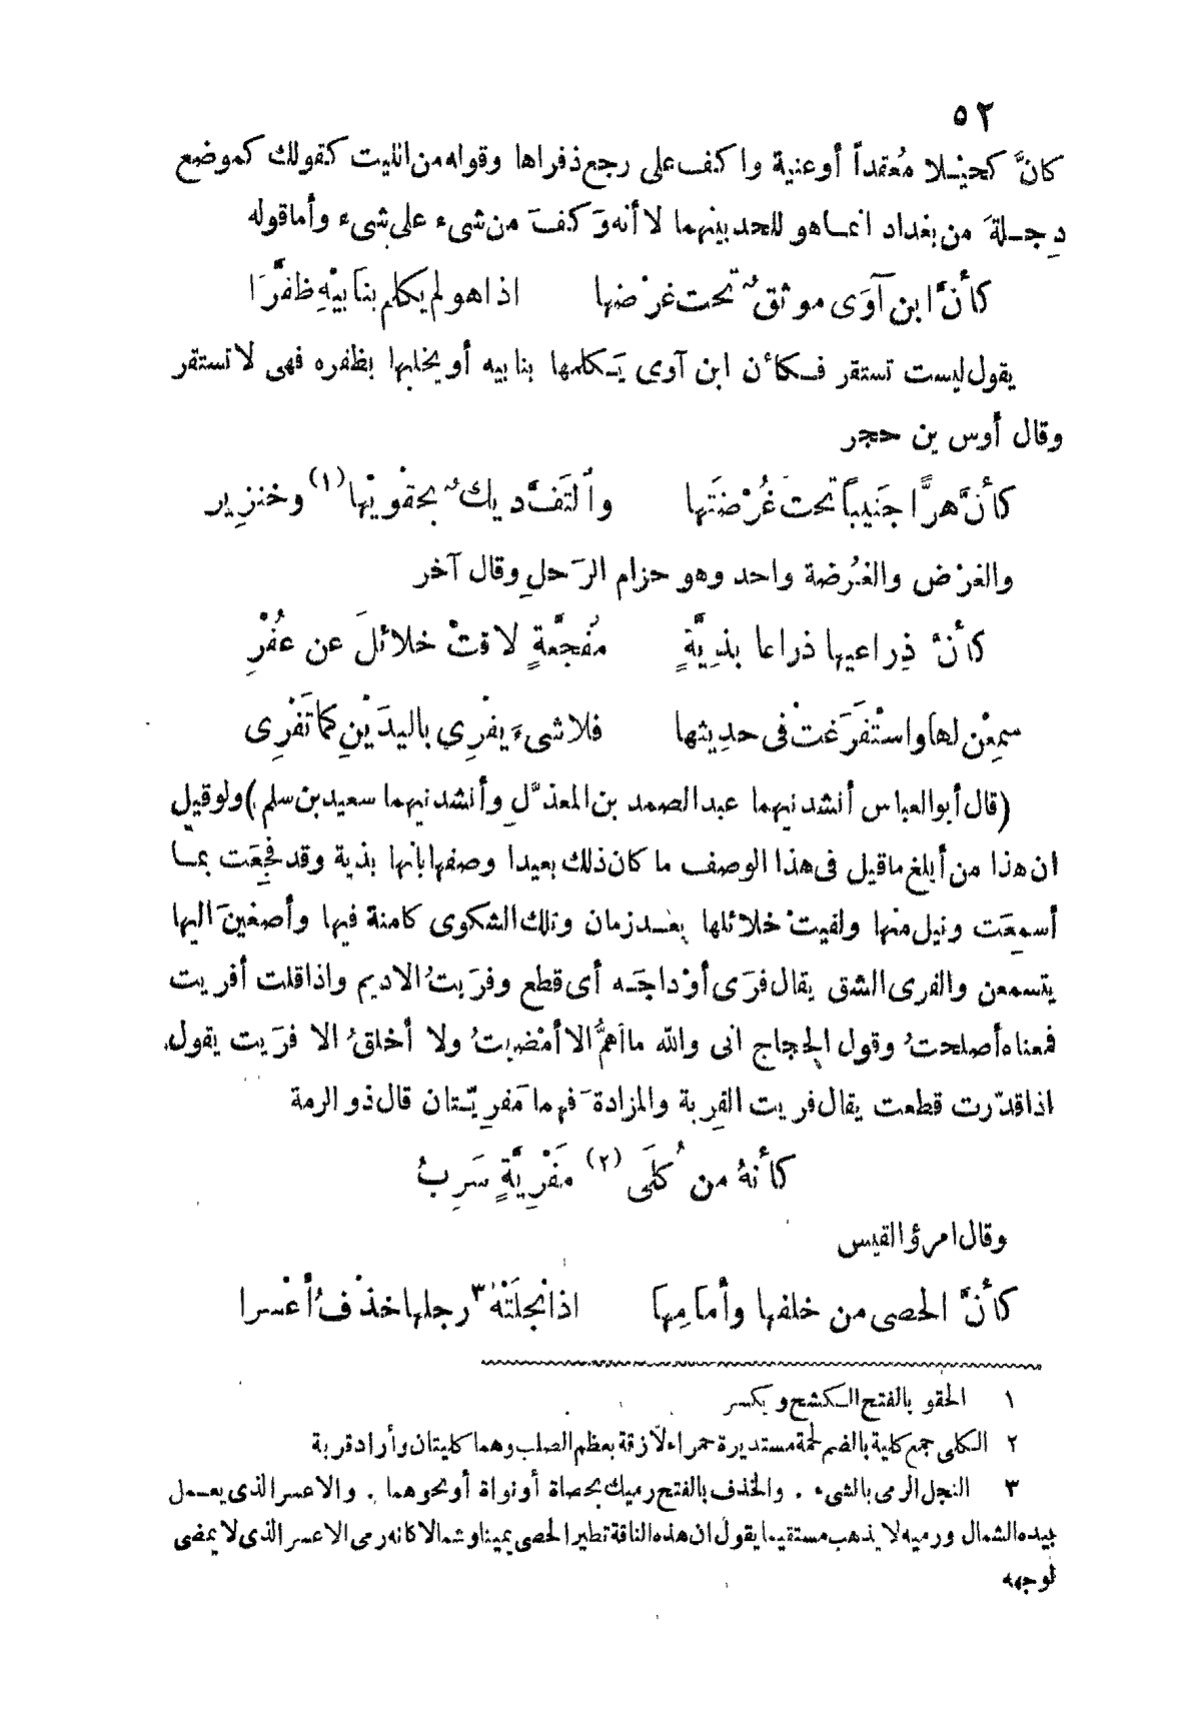 ٥٢
كانَّ كحيلا مُعقداً أو عنية واكف على رجع ذفراها وقوله من الليت كقولك كموضع
دِجلةَ من بغداد انما هو للحد بينهما لا أنه وَكَفَ من شىء على شىء وأما قوله
كأنَّ ابن آوَى موثقٌ تحت غرْضها اذا هو لم يكلم بنابيْهِ ظفَّرَا
يقول ليست تستقر فكأن ابن آوى يَكلمها بنابيه أو يخلبها بظفره فهى لا تستقر
وقال أوس بن حجر
كأنَّ هرًّا جَنيباً تحتَ غُرْضَتها والتَفَّ ديكٌ بحقْويْها (١) وخنزير
والغرْض والغُرضة واحد وهو حزام الرَحلِ وقال آخر
كأنَّ ذِراعيها ذراعا بذيَّةٍ مُفجَّعةٍ لاقتْ خلائلَ عن عُفْرِ
سمِعْن لها واسْتفرَغتْ فى حدِيثها فلا شىءَ يفْرِى باليدَيْنِ كما تَفْرِى
(قال أبو العباس أنشدنيهما عبد الصمد بن المعذَّلِ وأنشدنيهما سعيد بن سلم) ولو قيل
ان هذا من أبلغ ما قيل فى هذا الوصف ما كان ذلك بعيدا وصفها بانها بذية وقد فجِعَت بما
أسمِعَت ونيل منها ولقيتْ خلائلها بعد زمان وتلك الشكوى كامنة فيها وأصغينَ اليها
يتسمعن والفرى الشق يقال فرَى أوْداجَه أى قطع وفرَيتُ الاديم واذا قلت أفريت
فمعناه أصلحتُ وقول الحجاج انى والله ما أهمُّ الا أمْضيتُ ولا أخلقُ الا فرَيت يقول
اذا قدّرت قطعت يقال فريت القربة والمزادةَ فهما مَفريّتان قال ذو الرمة
كأنهُ من كُلَى (٢) مَفْرِيَّةٍ سَرِبُ
وقال امرؤ القيس
كأنَّ الحصى من خلفها وأمامِها اذا نْجلَتْهُ ٣ رجلها خذْفُ أعْسرا
١ الحقو بالفتح الكشح ويكسر
٢ الكلى جمع كلية بالضم لحمة مستديرة حمراء لازقة بعظم الصلب وهما كليتان وأراد قربة
٣ النجل الرمى بالشىء . والخذف بالفتح رميك بحصاة أو نواة أو نحوهما . والاعسر الذى يعمل
بيده الشمال ورميه لا يذهب مستقيما يقول ان هذه الناقة تطير الحصى يمينا وشمالا كانه رمى الاعسر الذى لا يمضى
لوجهه